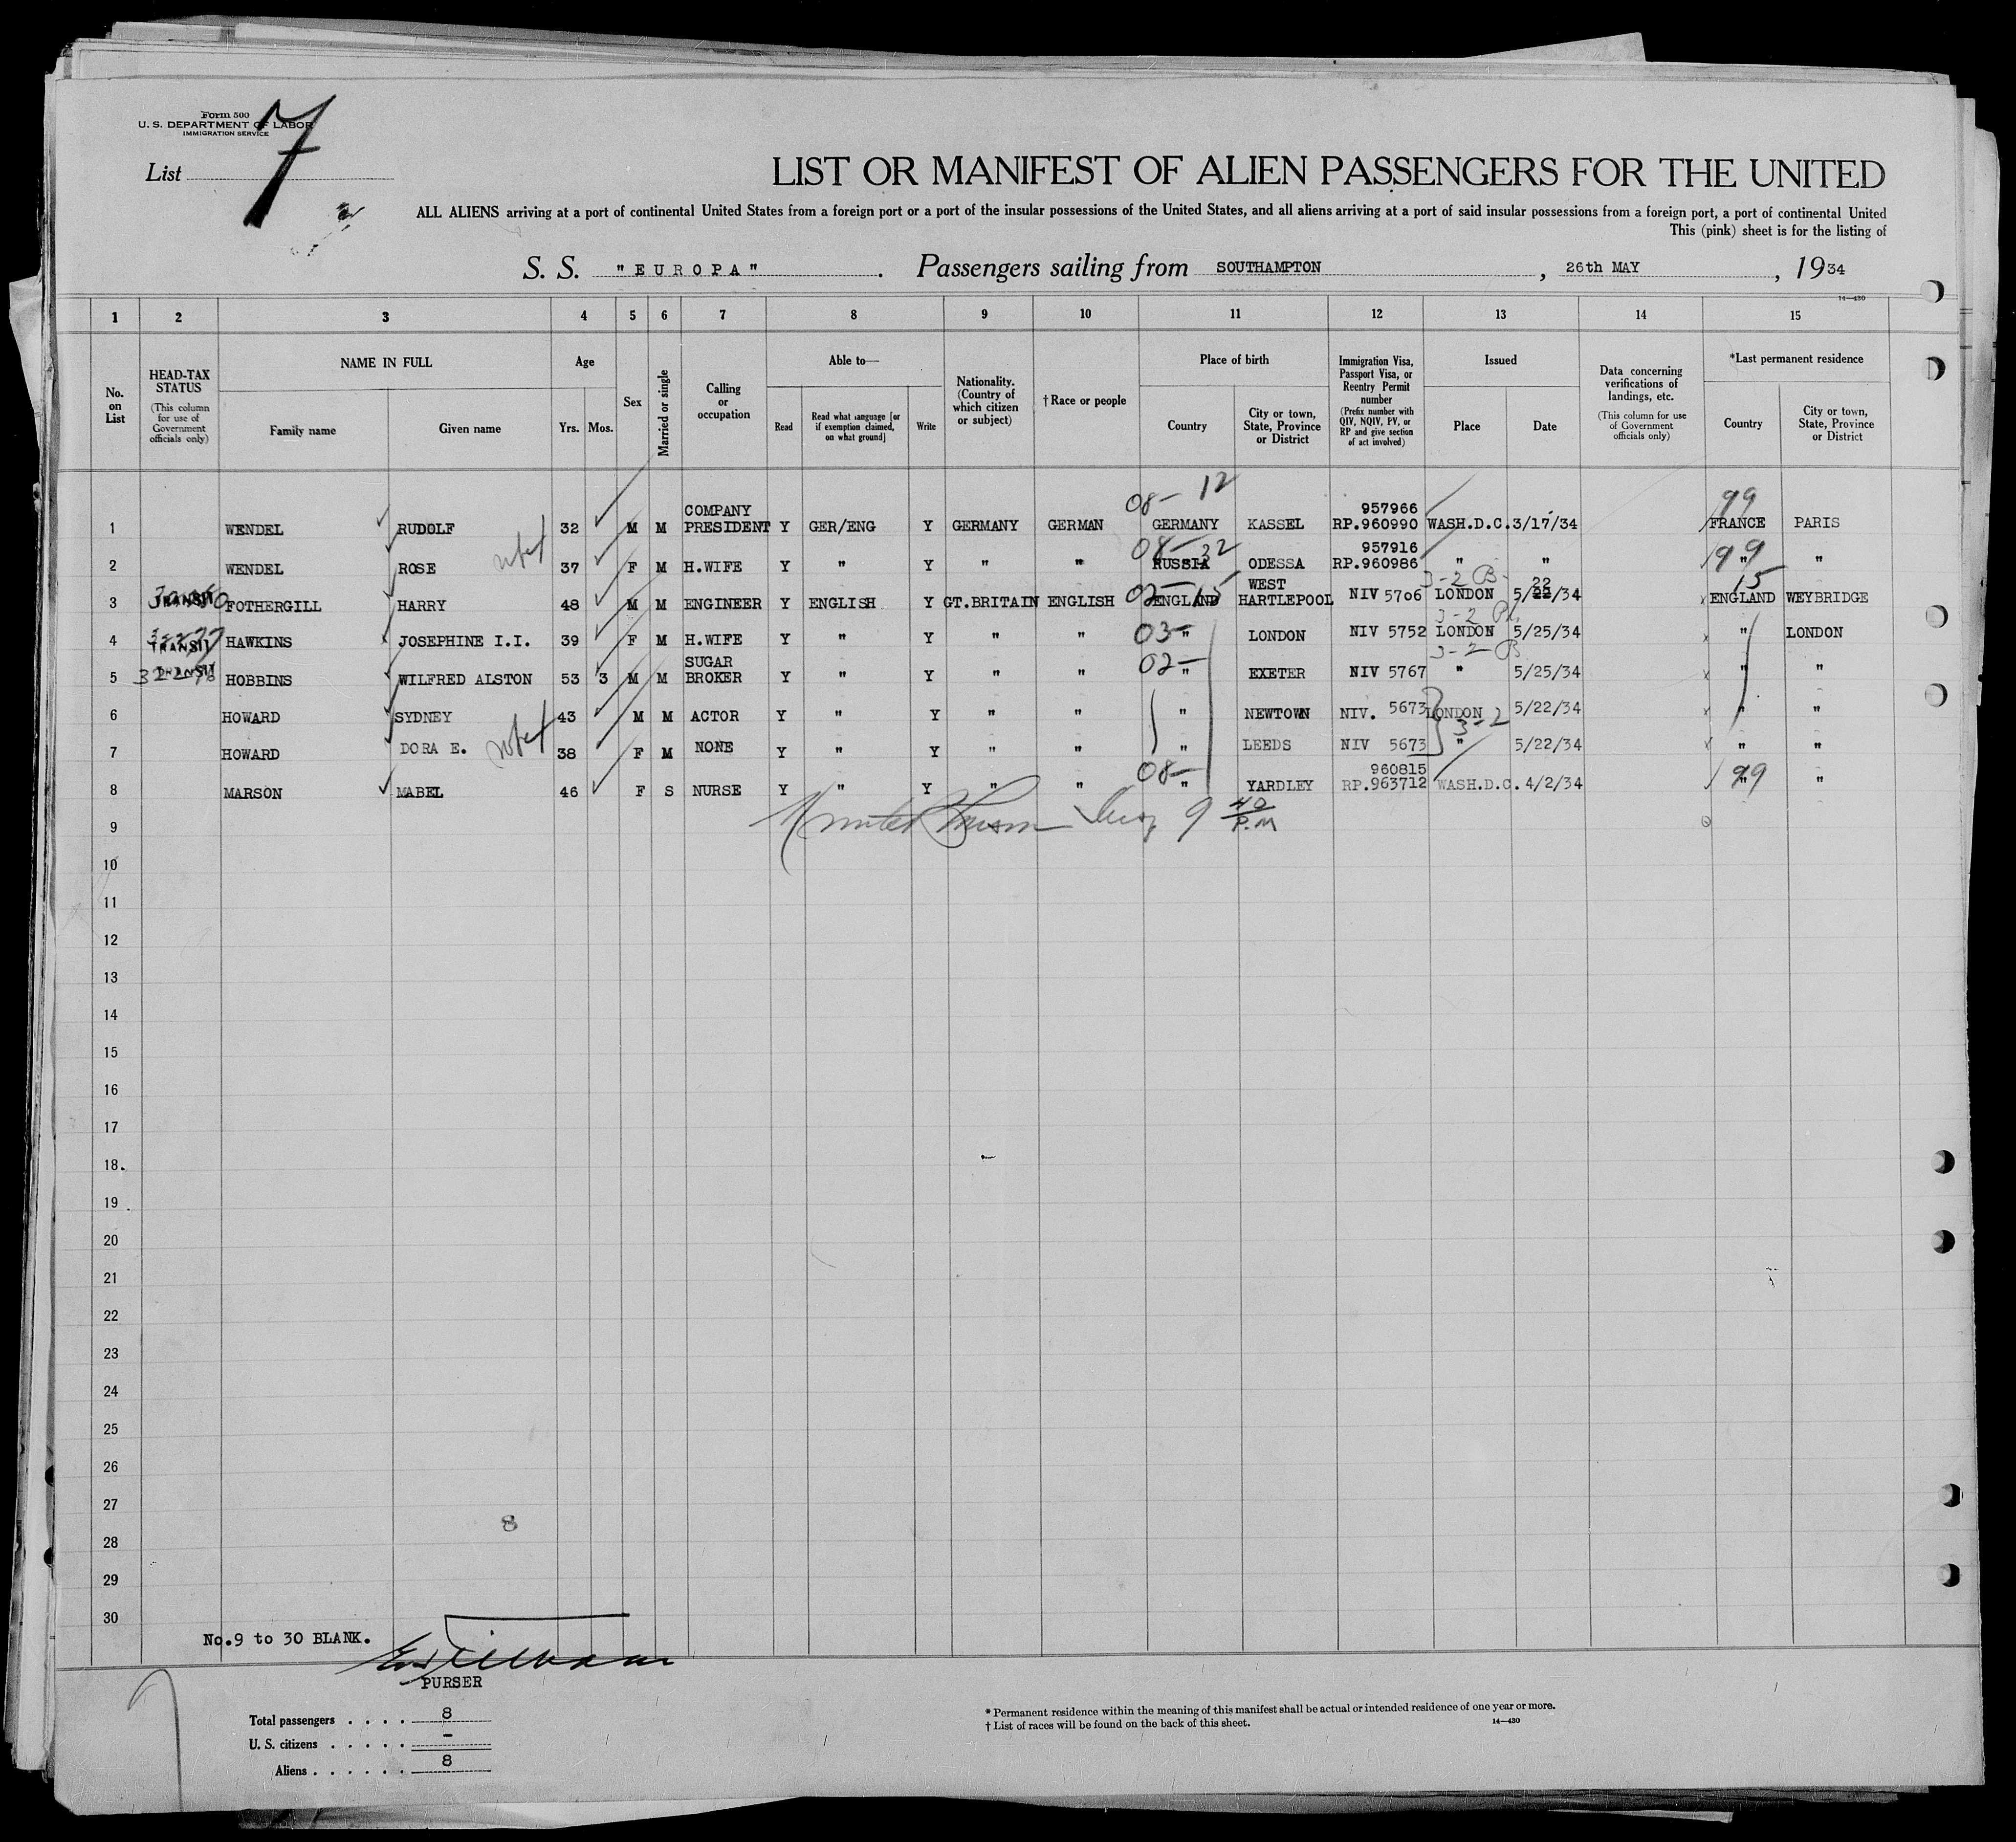 Form 500
U. S. DEPARTMENT OF LABOR
IMMIGRATION SERVICE
List 7
LIST OR MANIFEST OF ALIEN PASSENGERS FOR THE UNITED
ALL ALIENS arriving at a port of continental United States from a foreign port or a port of the insular possessions of the United States, and all aliens arriving at a port of said insular possessions from a foreign port, a port of continental United
This (pink) sheet is for the listing of
S. S. "EUROPA". Passengers sailing from SOUTHAMPTON, 26th MAY, 1934
14—430
1 2 3 4 5 6 7 8 9 10 11 12 13 14 15
No. on List
HEAD-TAX STATUS (This column for use of Government officials only)
NAME IN FULL
Family name
Given name
Age
Yrs. Mos.
Sex
Married or single
Calling or occupation
Able to—
Read
Read what language [or if exemption claimed, on what ground]
Write
Nationality. (Country of which citizen or subject)
† Race or people
Place of birth
Country
City or town, State, Province or District
Immigration Visa, Passport Visa, or Reentry Permit number (Prefix number with QIV, NQIV, PV, or RP and give section of act involved)
Issued
Place
Date
Data concerning verifications of landings, etc. (This column for use of Government officials only)
*Last permanent residence
Country
City or town, State, Province or District
08- 12 99
1 WENDEL RUDOLF 32 M M COMPANY PRESIDENT Y GER/ENG Y GERMANY GERMAN GERMANY KASSEL 957966 RP.960990 WASH.D.C. 3/17/34 FRANCE PARIS
08- 32 99
2 WENDEL ROSE 37 F M H.WIFE Y " Y " " RUSSIA ODESSA 957916 RP.960986 " " " "
02- 15 3-2 B 22 15
3 TRANSIT FOTHERGILL HARRY 48 M M ENGINEER Y ENGLISH Y GT.BRITAIN ENGLISH ENGLAND WEST HARTLEPOOL NIV 5706 LONDON 5/22/34 ENGLAND WEYBRIDGE
03- 3-2
4 TRANSIT HAWKINS JOSEPHINE I.I. 39 F M H.WIFE Y " Y " " " LONDON NIV 5752 LONDON 5/25/34 " LONDON
02- 3-2 B
5 TRANSIT HOBBINS WILFRED ALSTON 53 3 M M SUGAR BROKER Y " Y " " " EXETER NIV 5767 " 5/25/34 " "
6 HOWARD SYDNEY 43 M M ACTOR Y " Y " " " NEWTOWN NIV. 5673 LONDON 5/22/34 " "
3-2
7 HOWARD DORA E. 38 F M NONE Y " Y " " " LEEDS NIV 5673 " 5/22/34 " "
08- 99
8 MARSON MABEL 46 F S NURSE Y " Y " " " YARDLEY 960815 RP.963712 WASH.D.C. 4/2/34 " "
9 9 40 P.M
10
11
12
13
14
15
16
17
18
19
20
21
22
23
24
25
26
27
8
28
29
30
No.9 to 30 BLANK.
PURSER
Total passengers . . . . 8
U. S. citizens . . . . . –
Aliens . . . . . . 8
* Permanent residence within the meaning of this manifest shall be actual or intended residence of one year or more.
† List of races will be found on the back of this sheet.
14—430